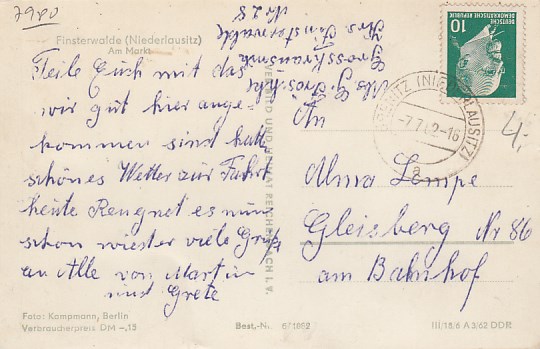 7980
Finsterwalde (Niederlausitz)
Am Markt
Teile Euch mit das
wir gut hier ange-
kommen sind hatt
schönes Wetter zur Fahrt
heute Rengnet es nun
schon wiester viele Grüße
an Alle von Martin
und Grete
Foto: Kampmann, Berlin
Verbraucherpreis DM -,15
Best.-Nr. 671862
VERLAG BILD UND HEIMAT REICHENBACH I. V.
Grosskrausnik
Krs. Finsterwalde
Nr 28
DEUTSCHE
DEMOKRATISCHE REPUBLIK
10
(NIEDERLAUSITZ)
-7.7.62-16
a
4,-
An
Alma Lempe
Gleisberg Nr 86
am Bahnhof
III/18/6 A 3/62 DDR